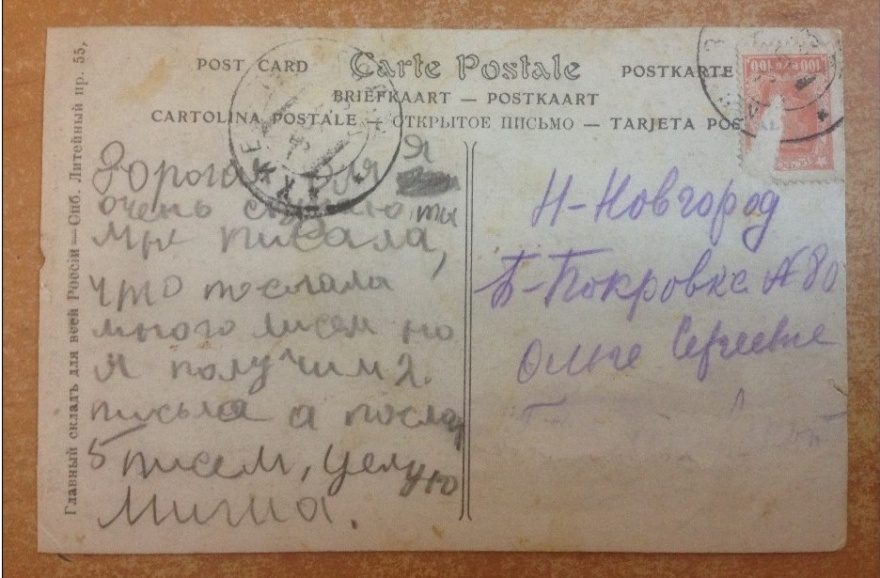 POST CARD Carte Postale POSTKARTE
BRIEFKAART — POSTKAART
CARTOLINA POSTALE — ОТКРЫТОЕ ПИСЬМО — TARJETA POSTAL
Главный складъ для всей Россіи — Спб. Литейный пр. 55,
100 100
Дорогая Оля Я
очень скучаю, ты
мне писала,
что послала
много писем но
я получил 2.
письма а послал
5 писем, целую
Миша.
Н-Новгород
Б-Покровка № 80
Ольге Сергеевне